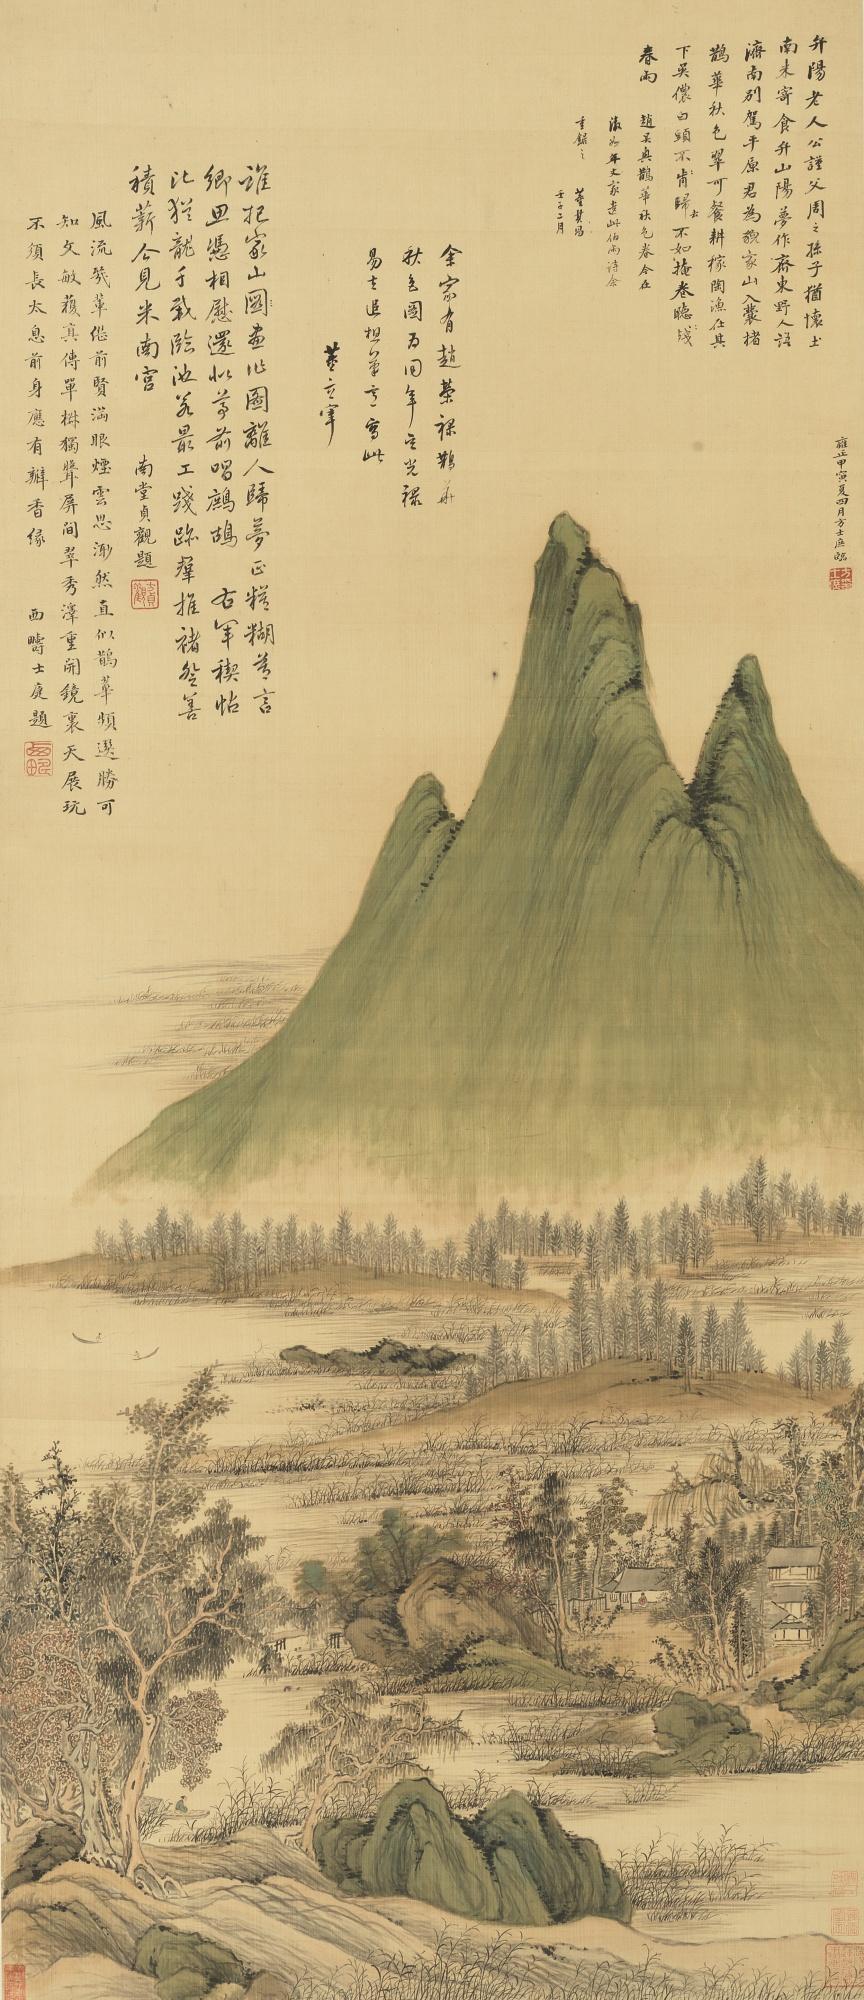 弁陽老人公謹父周之孫子猶懷土
南来寄食弁山陽夢作齊東野人語
濟南別駕平原君為貌家山入囊楮
鵲華秋色翠可餐耕稼陶漁在其
下吴儂白頭不肯歸不如掩卷聽
春雨
趙吴興鵲華秋色卷今在
年丈家此詩余
重録之
董其昌
壬子二月
余家有趙榮禄鵲華
秋色圖為同年光禄
易去追想筆意寫此
董玄宰
誰把家山圖畫作圖離人歸夢正糢糊莫言
鄉思憑相慰還似筝前唱鷓鴣
右軍稧帖
比猶龍千載臨池若最工踐跡羣推褚登善
積薪今見米南宫
南堂貞觀題
風流幾輩繼前賢滿眼煙雲思渺然直似鵲華頻選勝可
知文敏獲真傳單椒獨聳屏間翠秀澤重開鏡裏天展玩
不須長太息前身應有瓣香緣
西疇士庶題
雍正甲寅夏四月方士庶臨